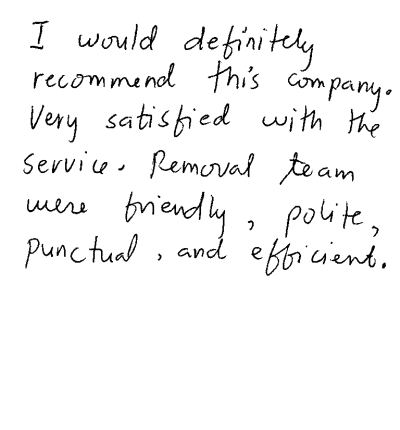 I would definitely
recommend this company.
Very satisfied with the
service. Removal team
were friendly, polite,
punctual, and efficient.